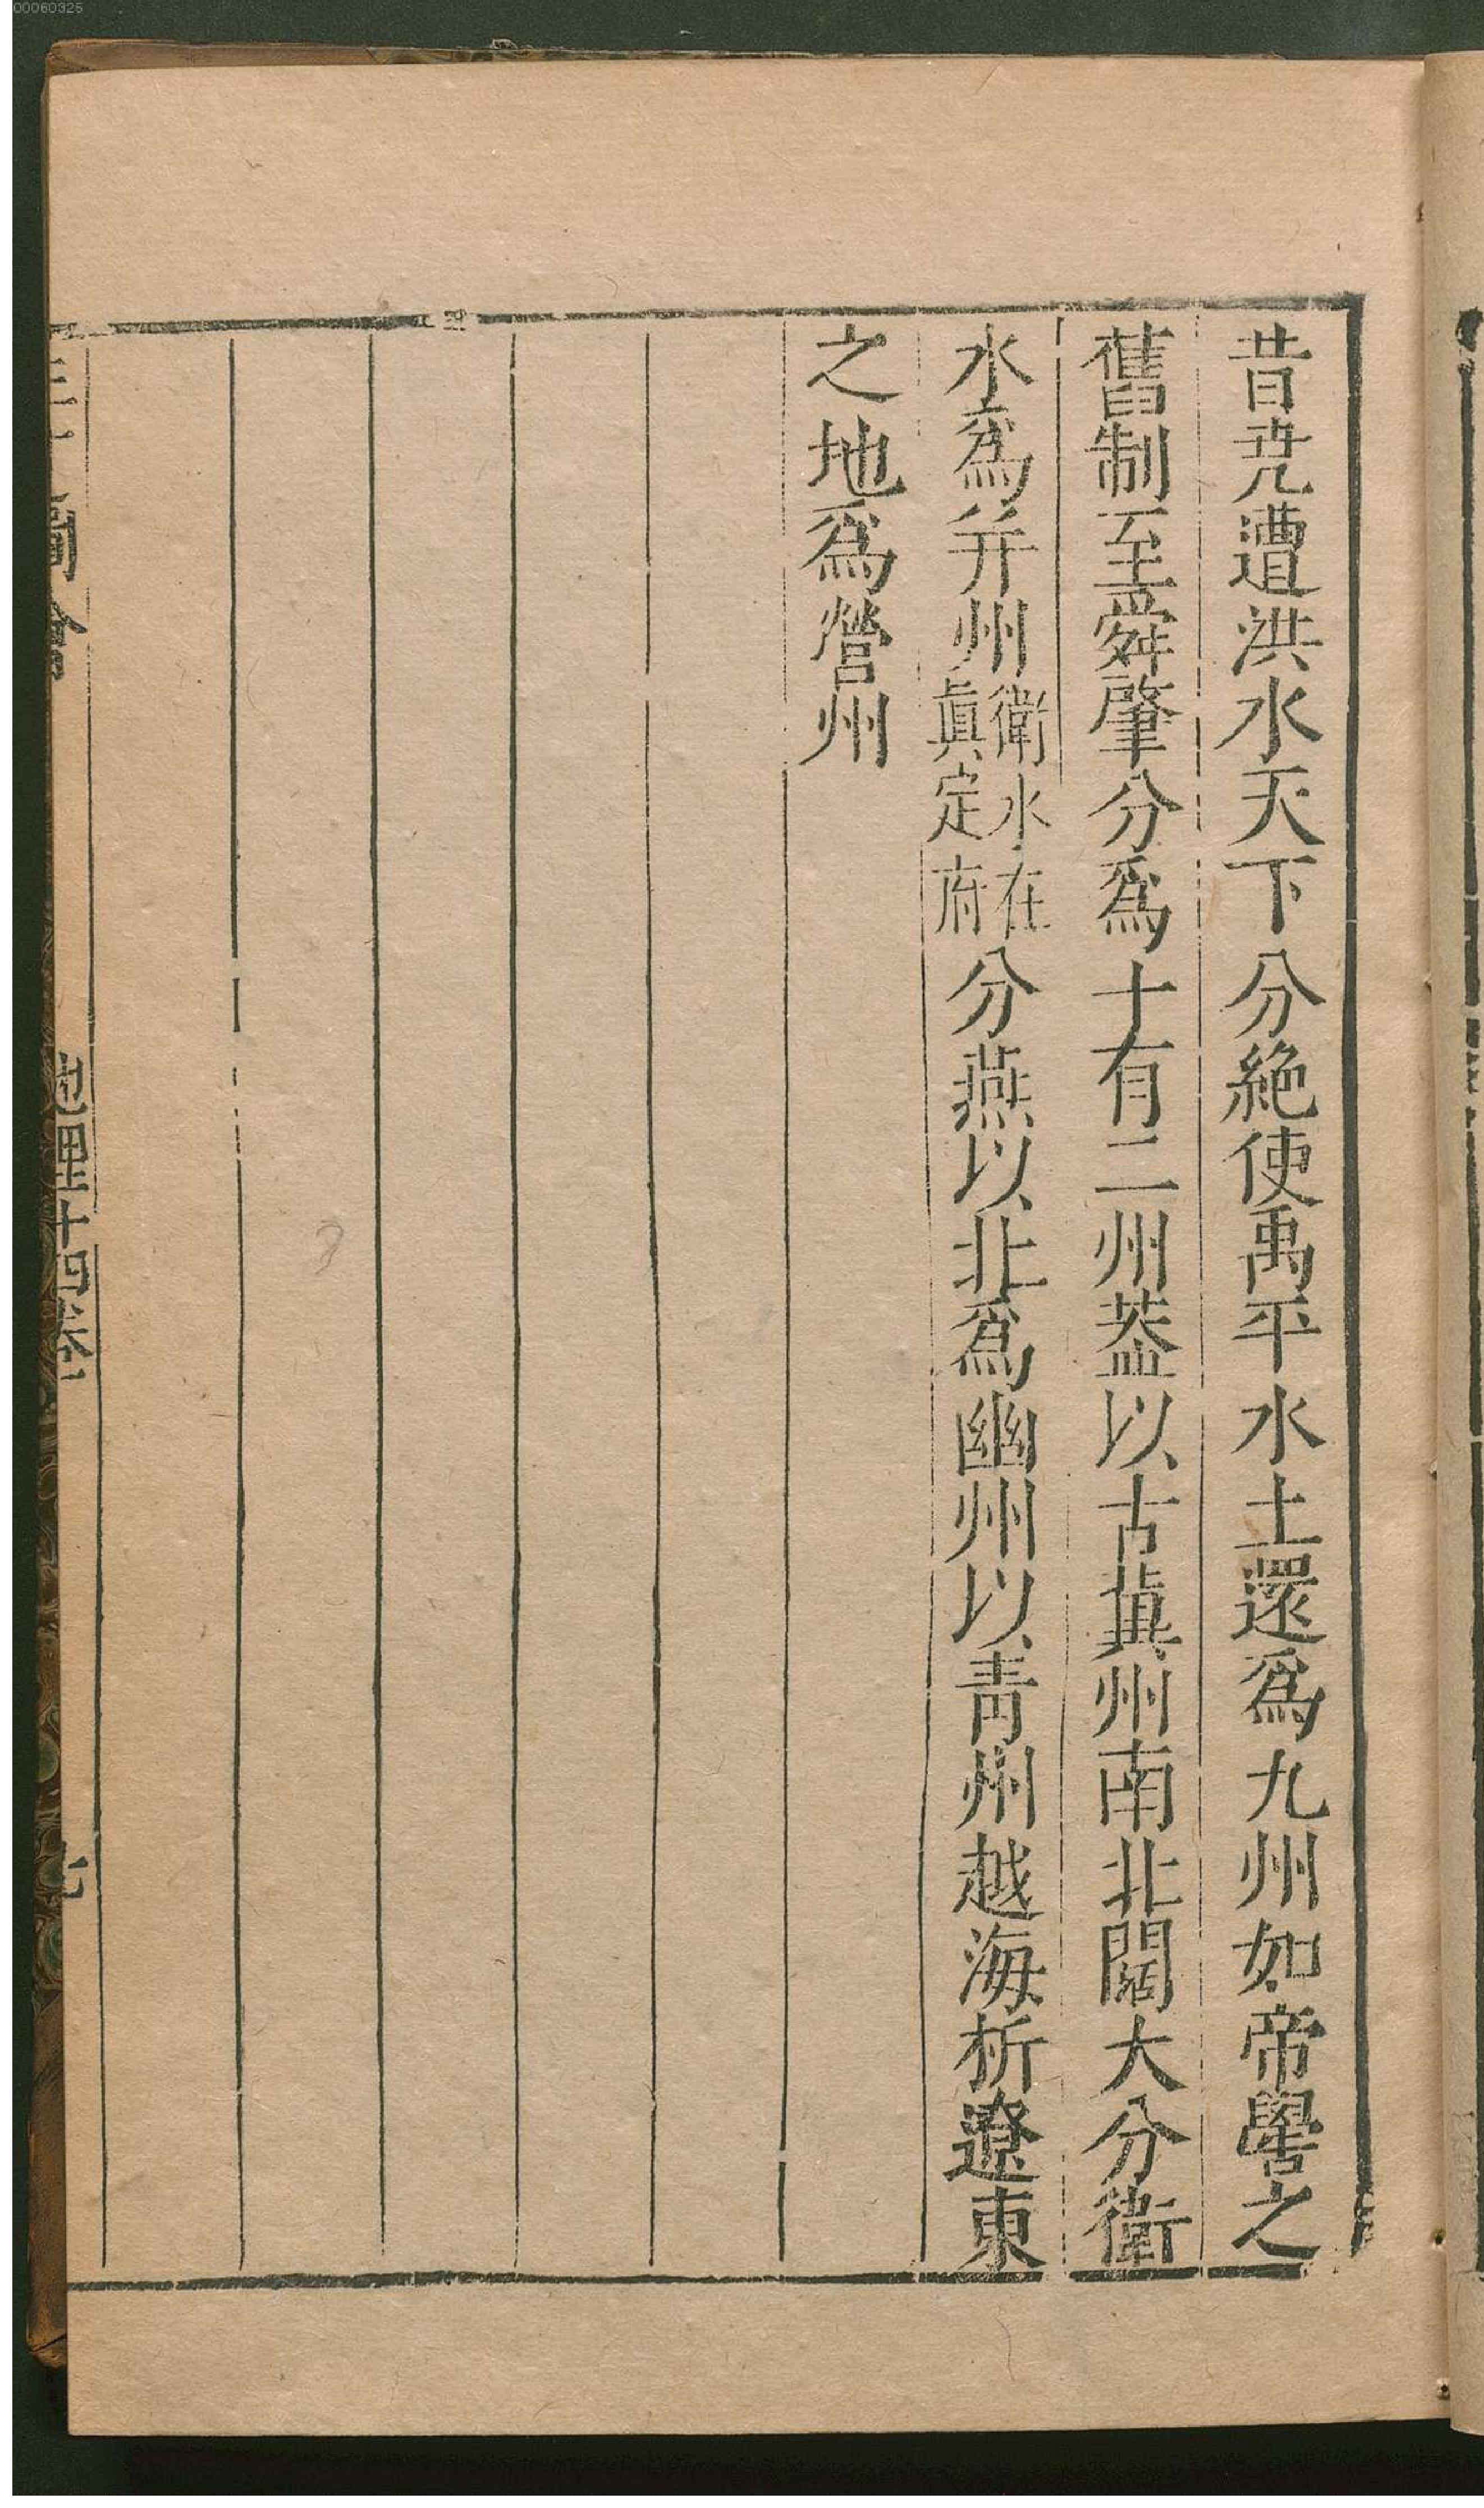 00060325
昔堯遭洪水天下分絶使禹平水土還爲九州如帝嚳之
舊制至舜肇分爲十有二州葢以古冀州南北闊大分衛
水爲并州衛水在眞定府分燕以北爲幽州以青州越海析遼東
之地爲營州
地理十四卷
七